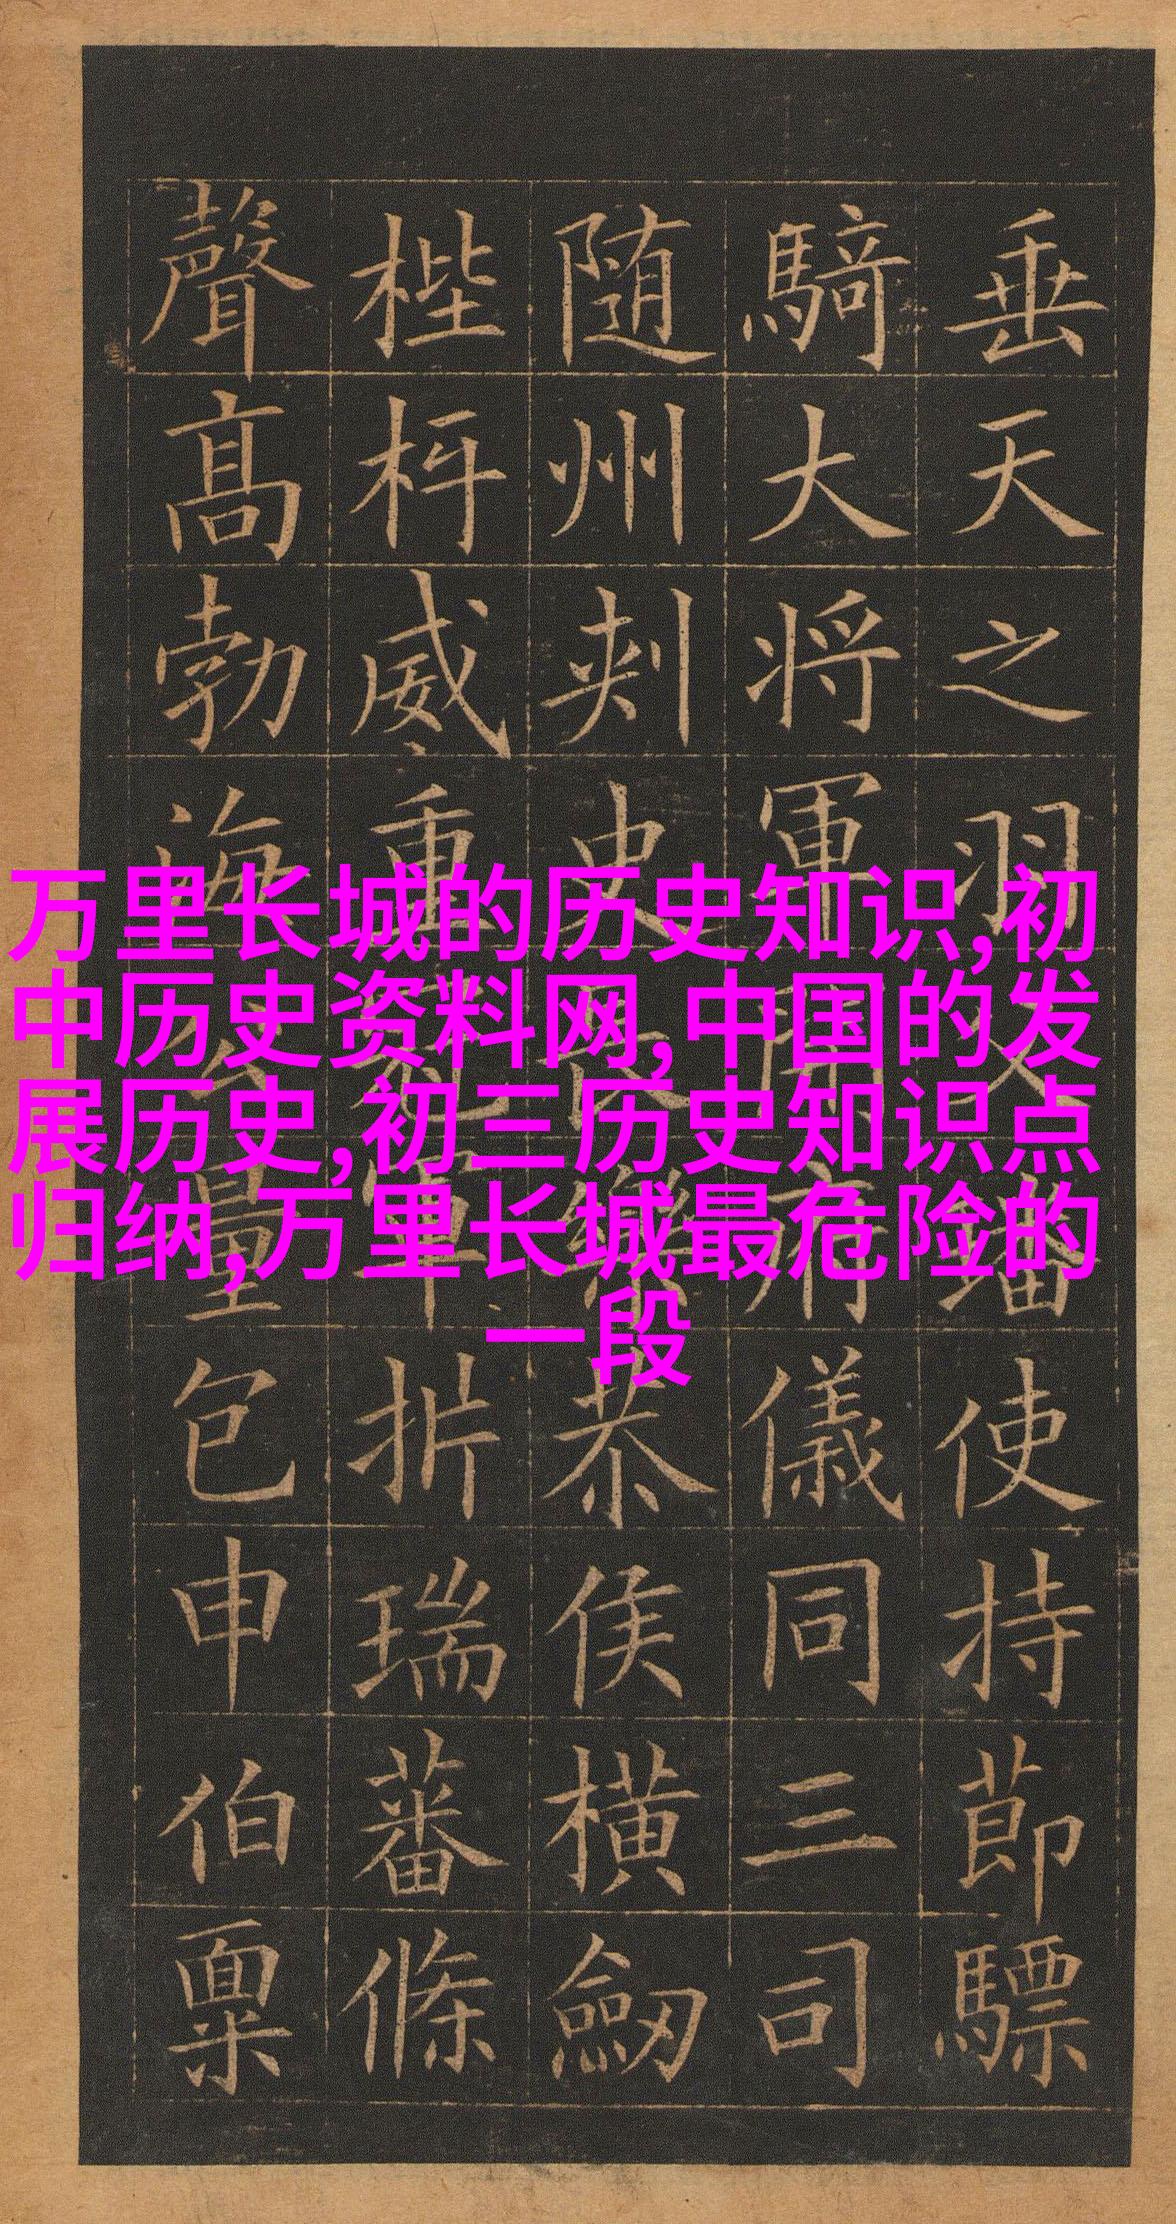 垂天之羽父璠使持節驃
騎大将軍開府儀同三司
随州刾史長樂恭侯橫劒
梐枑威重冠軍折瑞蕃條
聲高勃海公量包申伯稟
万里长城的历史知识,初
中历史资料网,中国的发
展历史,初三历史知识点
归纳,万里长城最危险的
一段